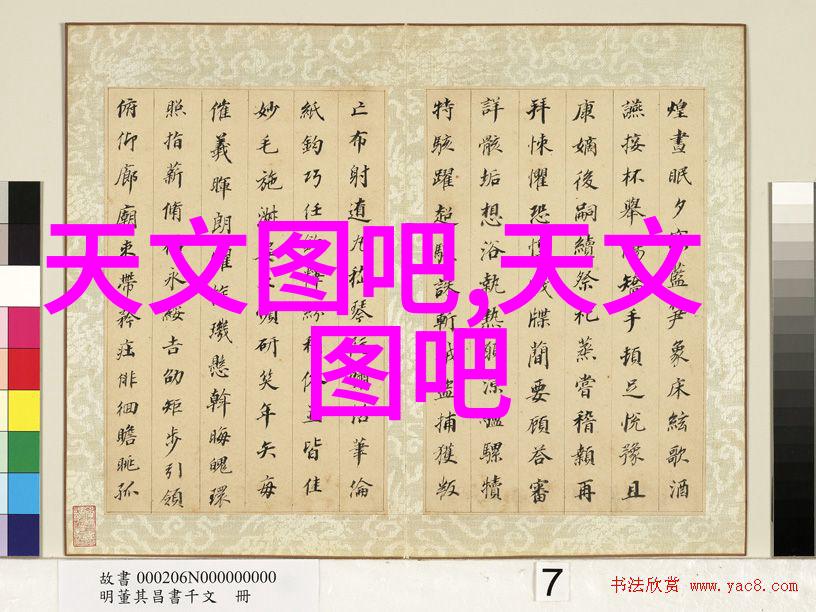 天文图吧,天文
图吧
煌晝眠夕寐藍笋象床絃歌酒
讌接杯舉觴矯手頓足悅豫且
康嫡後嗣續祭祀蒸嘗稽顙再
拜悚懼恐惶牋牒簡要顧答審
詳骸垢想浴執熱願涼驢騾犢
特駭躍超驤誅斬賊盜捕獲叛
亡布射遼丸嵇琴阮嘯恬筆倫
紙鈞巧任釣釋紛利俗並皆佳
妙毛施淑姿工嚬妍笑年矢每
催羲暉朗曜旋璣懸斡晦魄環
照指薪脩祜永綏吉劭矩步引領
俯仰廊廟束帶矜莊徘徊瞻眺孤
故書 000206N000000000
明董其昌書千文 冊
7
书法欣赏 www.yac8.com